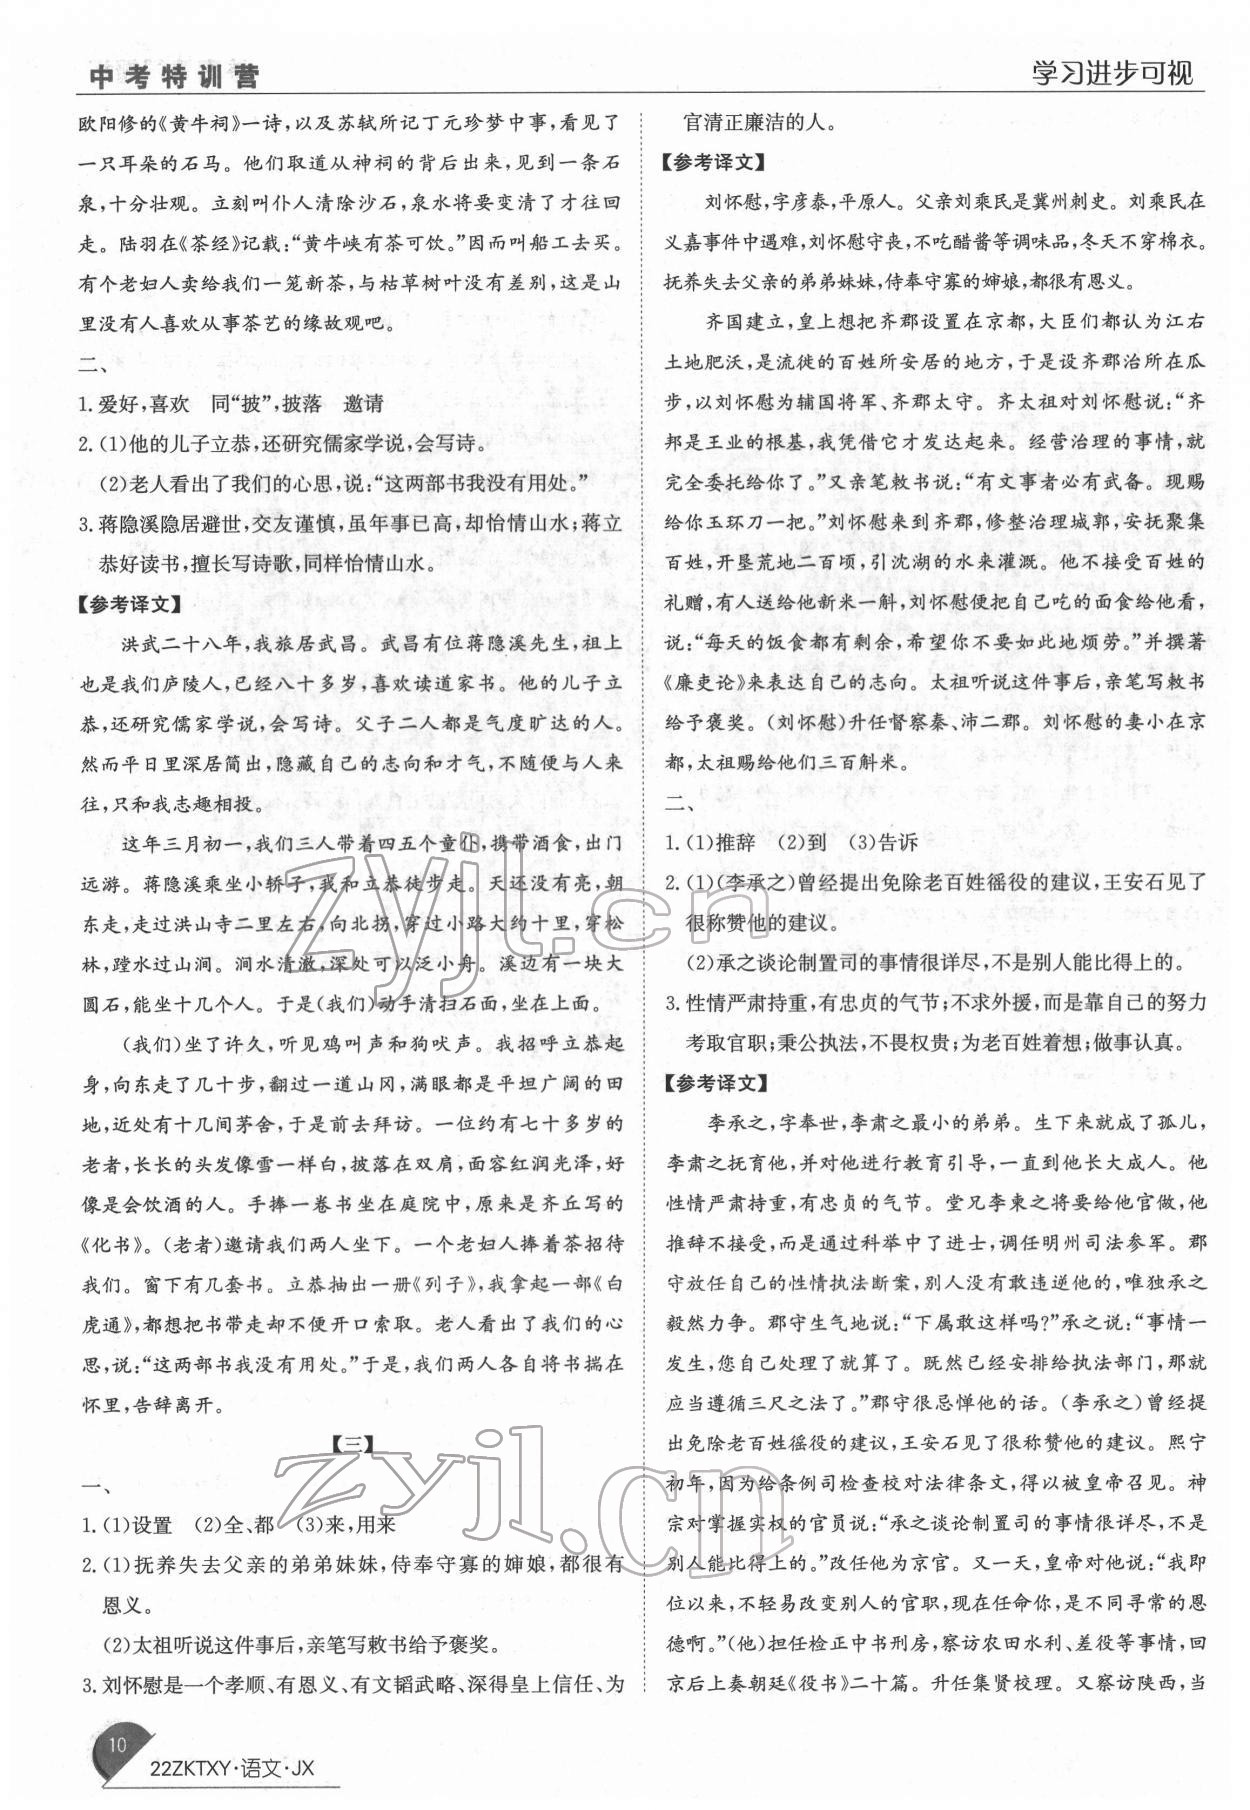 中考特训营
学习进步可视
欧阳修的《黄牛祠》一诗，以及苏轼所记丁元珍梦中事，看见了
一只耳朵的石马。他们取道从神祠的背后出来，见到一条石
泉，十分壮观。立刻叫仆人清除沙石，泉水将要变清了才往回
走。陆羽在《茶经》记载：“黄牛峡有茶可饮。”因而叫船工去买。
有个老妇人卖给我们一笼新茶，与枯草树叶没有差别，这是山
里没有人喜欢从事茶艺的缘故观吧。
二、
1. 爱好，喜欢　同“披”，披落　邀请
2. (1)他的儿子立恭，还研究儒家学说，会写诗。
(2)老人看出了我们的心思，说：“这两部书我没有用处。”
3. 蒋隐溪隐居避世，交友谨慎，虽年事已高，却怡情山水；蒋立
恭好读书，擅长写诗歌，同样怡情山水。
【参考译文】
洪武二十八年，我旅居武昌。武昌有位蒋隐溪先生，祖上
也是我们庐陵人，已经八十多岁，喜欢读道家书。他的儿子立
恭，还研究儒家学说，会写诗。父子二人都是气度旷达的人。
然而平日里深居简出，隐藏自己的志向和才气，不随便与人来
往，只和我志趣相投。
这年三月初一，我们三人带着四五个童仆，携带酒食，出门
远游。蒋隐溪乘坐小轿子，我和立恭徒步走。天还没有亮，朝
东走，走过洪山寺二里左右，向北拐，穿过小路大约十里，穿松
林，蹚水过山涧。涧水清澈，深处可以泛小舟。溪边有一块大
圆石，能坐十几个人。于是(我们)动手清扫石面，坐在上面。
(我们)坐了许久，听见鸡叫声和狗吠声。我招呼立恭起
身，向东走了几十步，翻过一道山冈，满眼都是平坦广阔的田
地，近处有十几间茅舍，于是前去拜访。一位约有七十多岁的
老者，长长的头发像雪一样白，披落在双肩，面容红润光泽，好
像是会饮酒的人。手捧一卷书坐在庭院中，原来是齐丘写的
《化书》。(老者)邀请我们两人坐下。一个老妇人捧着茶招待
我们。窗下有几套书。立恭抽出一册《列子》，我拿起一部《白
虎通》，都想把书带走却不便开口索取。老人看出了我们的心
思，说：“这两部书我没有用处。”于是，我们两人各自将书揣在
怀里，告辞离开。
【三】
一、
1. (1)设置　(2)全、都　(3)来，用来
2. (1)抚养失去父亲的弟弟妹妹，侍奉守寡的婶娘，都很有
恩义。
(2)太祖听说这件事后，亲笔写敕书给予褒奖。
3. 刘怀慰是一个孝顺、有恩义、有文韬武略、深得皇上信任、为
官清正廉洁的人。
【参考译文】
刘怀慰，字彦泰，平原人。父亲刘乘民是冀州刺史。刘乘民在
义嘉事件中遇难，刘怀慰守丧，不吃醋酱等调味品，冬天不穿棉衣。
抚养失去父亲的弟弟妹妹，侍奉守寡的婶娘，都很有恩义。
齐国建立，皇上想把齐郡设置在京都，大臣们都认为江右
土地肥沃，是流徙的百姓所安居的地方，于是设齐郡治所在瓜
步，以刘怀慰为辅国将军、齐郡太守。齐太祖对刘怀慰说：“齐
邦是王业的根基，我凭借它才发达起来。经营治理的事情，就
完全委托给你了。”又亲笔敕书说：“有文事者必有武备。现赐
给你玉环刀一把。”刘怀慰来到齐郡，修整治理城郭，安抚聚集
百姓，开垦荒地二百顷，引沈湖的水来灌溉。他不接受百姓的
礼赠，有人送给他新米一斛，刘怀慰便把自己吃的面食给他看，
说：“每天的饭食都有剩余，希望你不要如此地烦劳。”并撰著
《廉吏论》来表达自己的志向。太祖听说这件事后，亲笔写敕书
给予褒奖。(刘怀慰)升任督察秦、沛二郡。刘怀慰的妻小在京
都，太祖赐给他们三百斛米。
二、
1. (1)推辞　(2)到　(3)告诉
2. (1)(李承之)曾经提出免除老百姓徭役的建议，王安石见了
很称赞他的建议。
(2)承之谈论制置司的事情很详尽，不是别人能比得上的。
3. 性情严肃持重，有忠贞的气节；不求外援，而是靠自己的努力
考取官职；秉公执法，不畏权贵；为老百姓着想；做事认真。
【参考译文】
李承之，字奉世，李肃之最小的弟弟。生下来就成了孤儿，
李肃之抚育他，并对他进行教育引导，一直到他长大成人。他
性情严肃持重，有忠贞的气节。堂兄李柬之将要给他官做，他
推辞不接受，而是通过科举中了进士，调任明州司法参军。郡
守放任自己的性情执法断案，别人没有敢违逆他的，唯独承之
毅然力争。郡守生气地说：“下属敢这样吗？”承之说：“事情一
发生，您自己处理了就算了。既然已经安排给执法部门，那就
应当遵循三尺之法了。”郡守很忌惮他的话。(李承之)曾经提
出免除老百姓徭役的建议，王安石见了很称赞他的建议。熙宁
初年，因为给条例司检查校对法律条文，得以被皇帝召见。神
宗对掌握实权的官员说：“承之谈论制置司的事情很详尽，不是
别人能比得上的。”改任他为京官。又一天，皇帝对他说：“我即
位以来，不轻易改变别人的官职，现在任命你，是不同寻常的恩
德啊。”(他)担任检正中书刑房，察访农田水利、差役等事情，回
京后上奏朝廷《役书》二十篇。升任集贤校理。又察访陕西，当
zyjl.cn
zyjl.cn
10
22ZKTXY·语文·JX